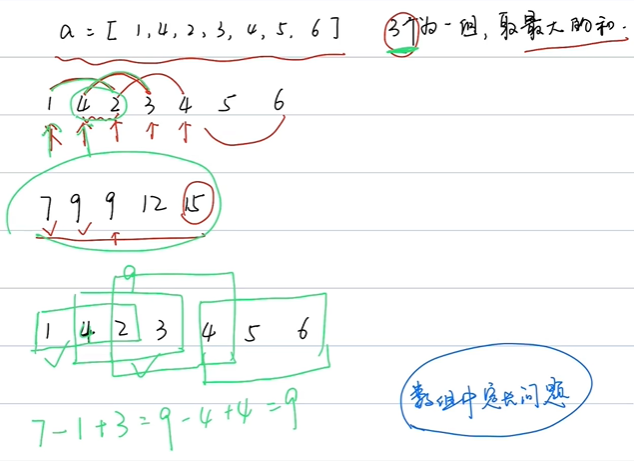 a = [ 1, 4, 2, 3, 4, 5, 6 ] 3个为一组, 取最大的和.
1 4 2 3 4 5 6
7 9 9 12 15
9
1 4 2 3 4 5 6
7-1+3=9-4+4=9
数组中定长问题